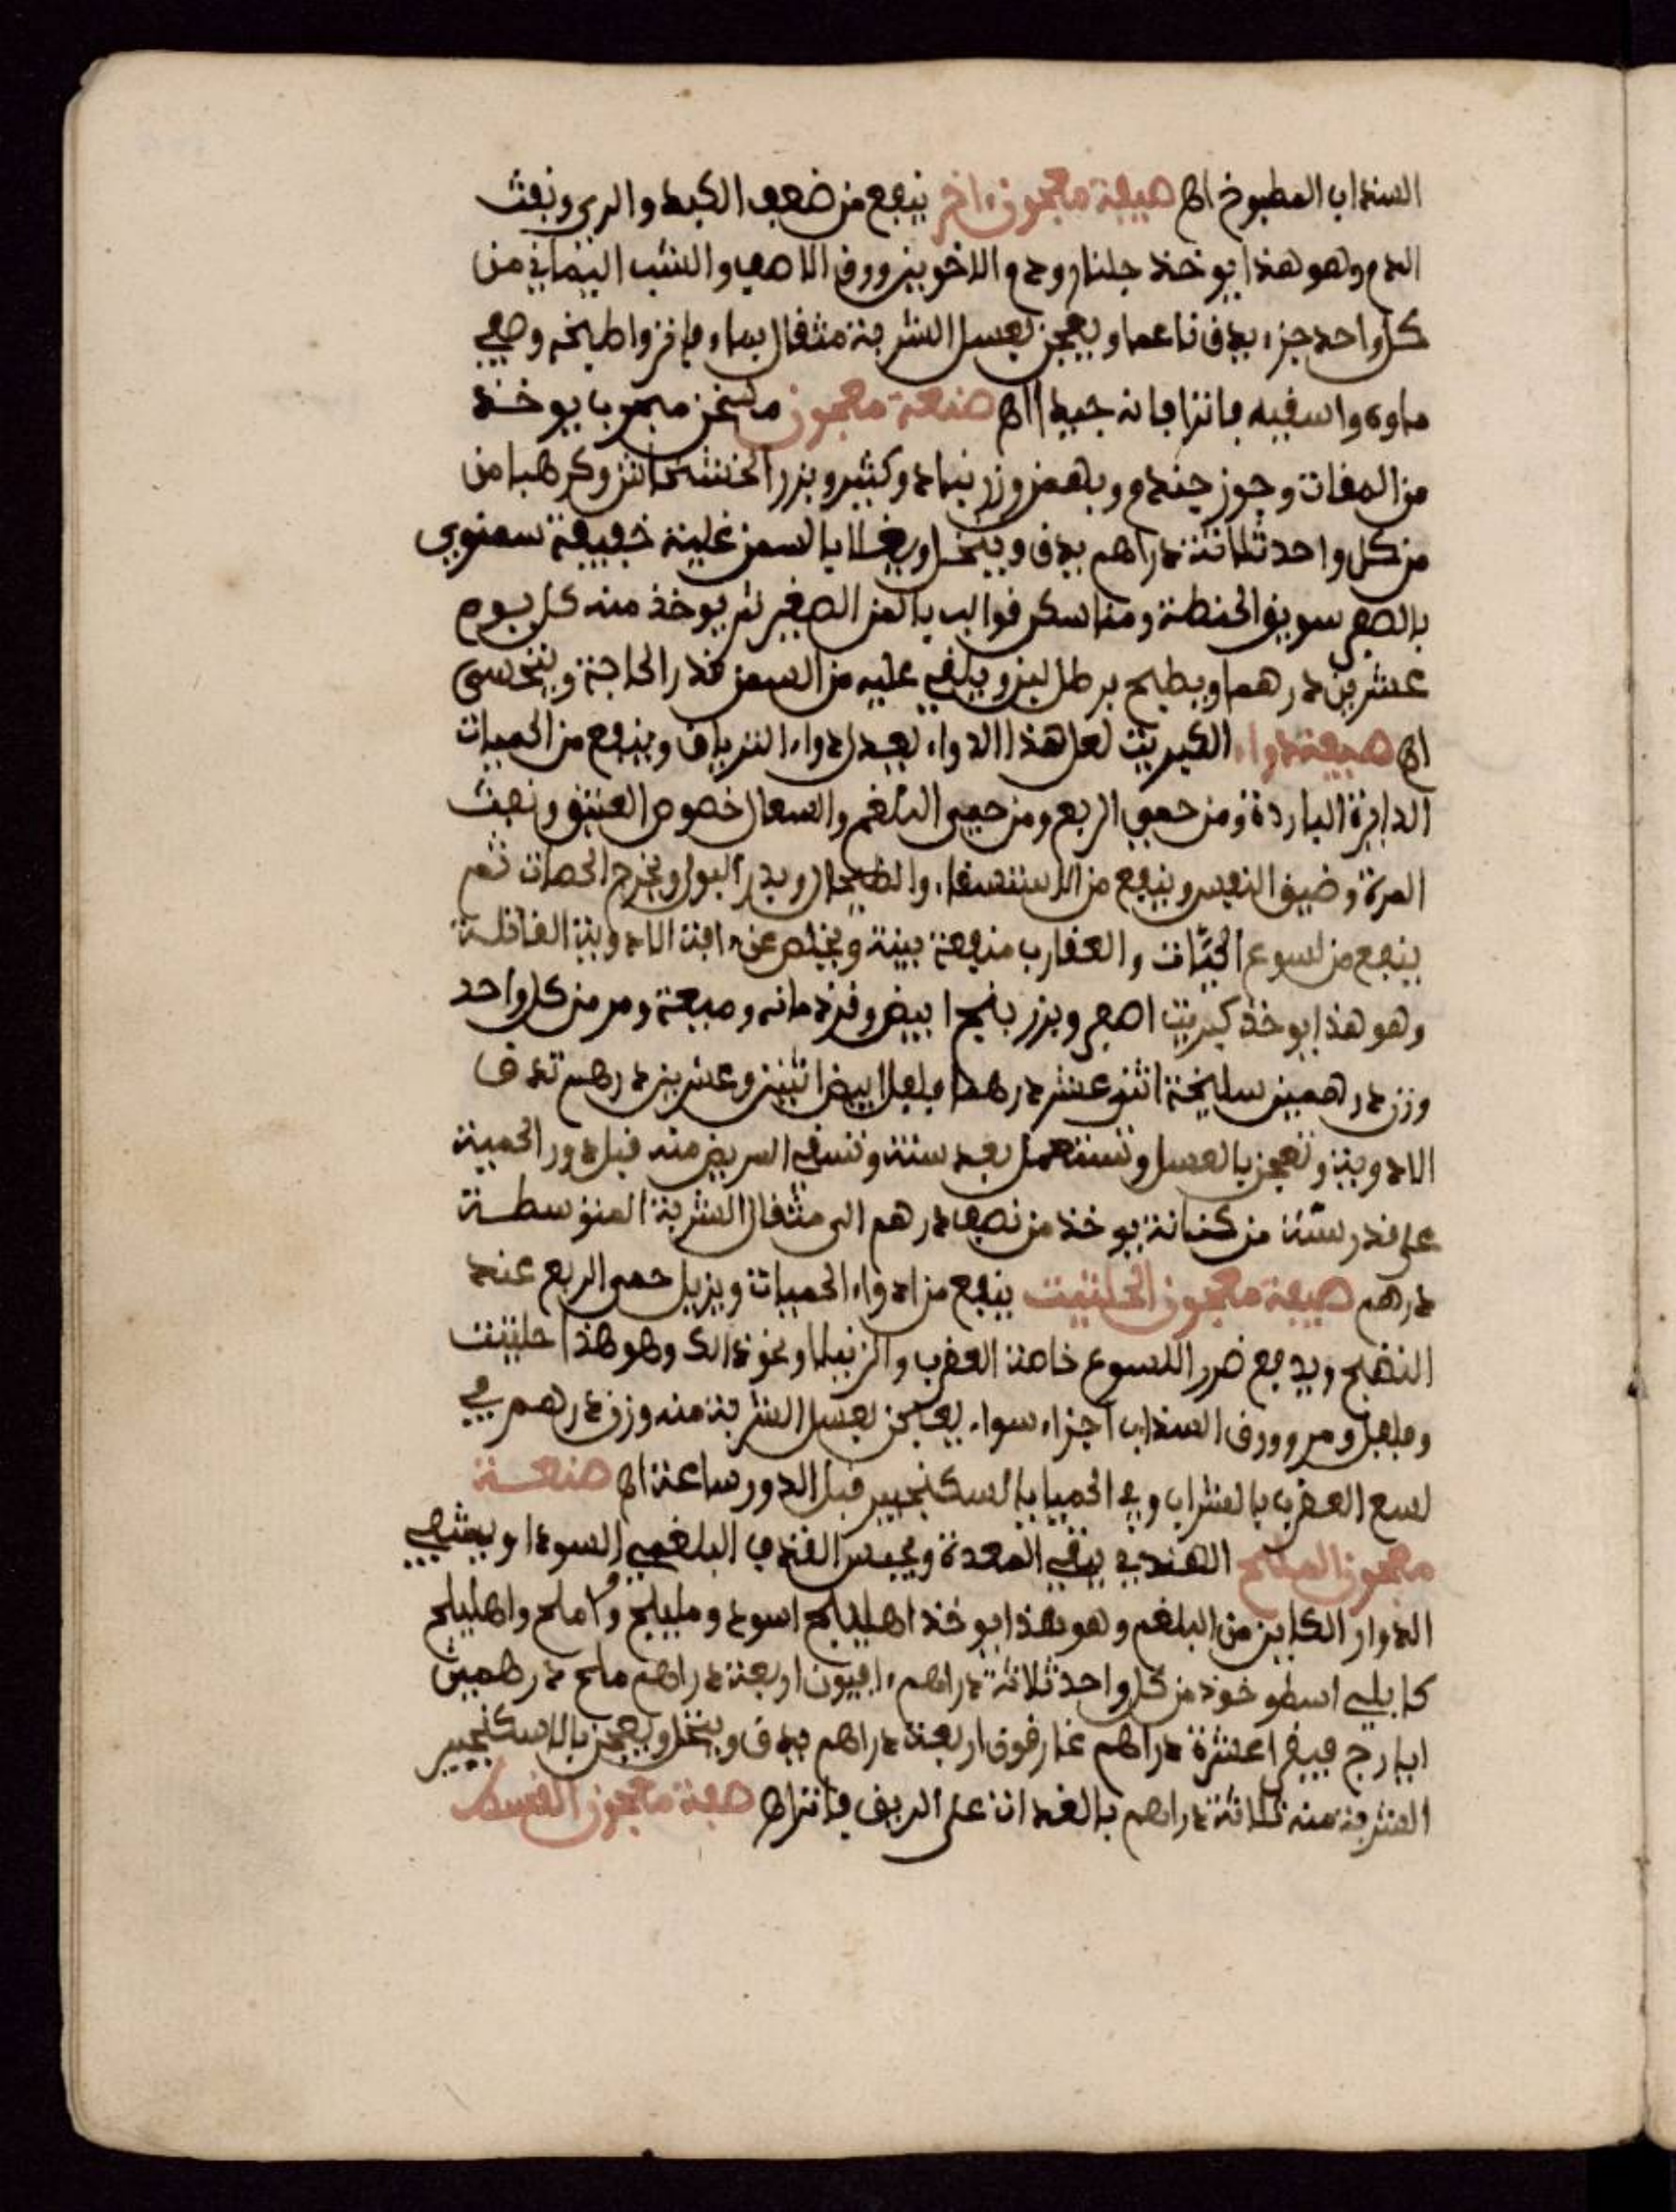 السذاب المطبوخ اهـ صيفة معجون ءاخر ينفع من ضعف الكبد والربو ونفث
الدم وهو هذا يوخذ جلنار ودم الاخوين وورق الاصف والشب اليماني من
كل واحد جزء يدق ناعما ويعجن بعسل الشربة مثقال بماء واطبخه وصفي
ماوه واسقيه فانه جيد اهـ صنعة معجون مسخن مجرب يوخذ
من المغاث وجوز جندم وبهمن وزرنباد وكثير وبزر الخشخاش
من كل واحد ثلاثة دراهم يدق وينخل ويغلا بالسمن غلية خفيفة
سويق الحنطة ومنا سكر قوالب بالمن الصغير ثم يوخذ منه كل يوم
عشرين درهما ويطبخ برطل لبن ويلقى عليه من السمن قدر الحاجة ويتحسى
اهـ صيفة دواء الكبريت لعل هذا الدواء يعدل دواء الترياق وينفع من الحميات
الدايرة الباردة ومن حمى الربع ومن حمى البلغم والسعال خصوص العتيق ونفث
المرة وضيق النفس وينفع من الاستسقاء والطحال ويدر البول ويخرج الحصات ثم
ينفع من لسوع الحيات والعقارب منفعة بينة ويخلص عن ءافة الادوية القاتلة
وهو هذا يوخذ كبريت اصفر وبزر بنج ابيض وقردمانه وميعة ومر من كل واحد
وزن درهمين سليخة اثنى عشر درهما فلفل ابيض اثنين وعشرين درهم تدق
الادوية وتعجن بالعسل وتستعمل بعد ستة وتسقي المريض منه قبل دور الحمية
على قدر سنه من كنانة يوخذ من نصف درهم الى مثقال الشربة المتوسطة
درهم صيفة معجون الحلتيت ينفع من ادواء الحميات ويزيل حمى الربع عند
النضج ويدفع ضرر اللسوع خاصة العقرب والرتيلا ونحو ذالك وهو هذا حلتيت
وفلفل ومر وورق السذاب اجزاء سواء يعجن بعسل الشربة منه وزن درهم في
لسع العقرب بالشراب وفي الحميا بالسكنجبير قبل الدور ساعة اهـ صنعة
معجون الملح الهندي ينقي المعدة ويحبس القذف البلغمي السودا ويشفي
الدوار الكاين من البلغم وهو هذا يوخذ اهليلج اسود ومليلج واملج واهليلج
كابلي اسطوخوذ من كل واحد ثلاثة دراهم افيون اربعة دراهم ملح درهمين
ايارج فيقرا عشرة دراهم غارقون اربعة دراهم يدق وينخل ويعجن بالاسكنجبير
الشربة منه ثلاثة دراهم بالغدات على الريق اهـ صفة معجون القسط